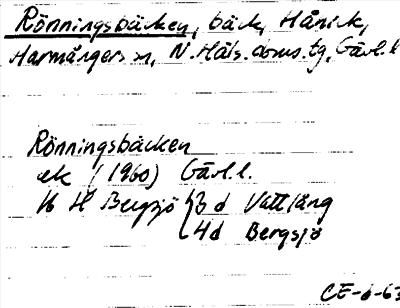 Rönningsbäcken, bäck, Hånick,
Harmångers sn, N. Häls. doms.tg, Gävl.l
Rönningsbäcken
ek (1960) Gävl.l.
16 H Bergsjö 3 d Vattlång
4d Bergsjö
CE-6-63